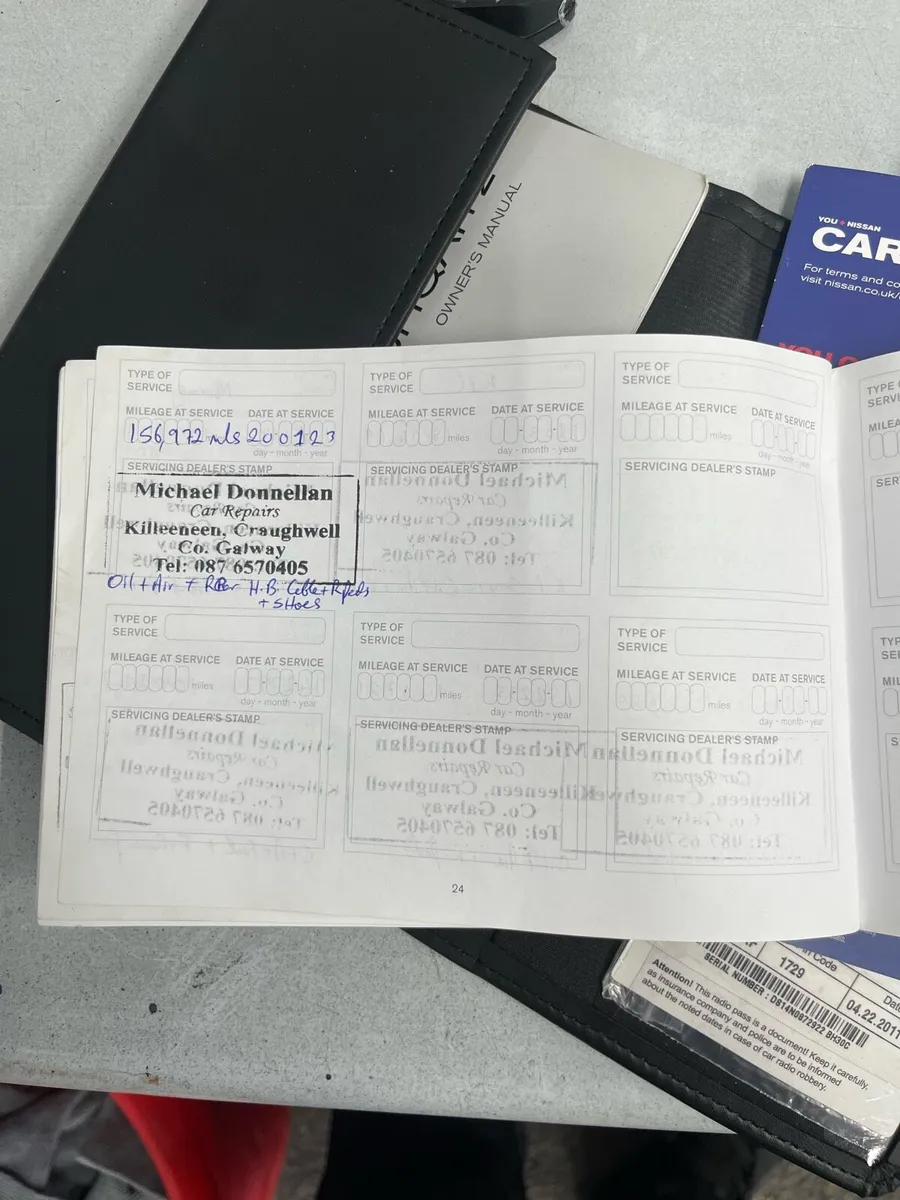 OWNER'S MANUAL
YOU + NISSAN
CAR
For terms and co
visit nissan.co.uk/
TYPE OF
SERVICE
MILEAGE AT SERVICE DATE AT SERVICE
156,972 mls 200123
day - month - year
SERVICING DEALER'S STAMP
Michael Donnellan
Car Repairs
Killeeneen, Craughwell
Co. Galway
Tel: 087 6570405
Oil + Air + Rear H.B. Cable +
+ SHoes
TYPE OF
SERVICE
MILEAGE AT SERVICE DATE AT SERVICE
miles
day - month - year
SERVICING DEALER'S STAMP
TYPE OF
SERVICE
MILEAGE AT SERVICE DATE AT SERVICE
miles
day - month - year
SERVICING DEALER'S STAMP
TYPE OF
SERVICE
MILEAGE AT SERVICE DATE AT SERVICE
miles
day - month - year
SERVICING DEALER'S STAMP
TYPE OF
SERVICE
MILEAGE AT SERVICE DATE AT SERVICE
miles
day - month - year
SERVICING DEALER'S STAMP
TYPE OF
SERVICE
MILEAGE AT SERVICE DATE AT SERVICE
miles
day - month - year
SERVICING DEALER'S STAMP
24
Code
1729
04.22.2011
SERIAL NUMBER : D814N0872922 BH30C
Attention! This radio pass is a document! Keep it carefully,
as insurance company and police are to be informed
about the noted dates in case of car radio robbery.